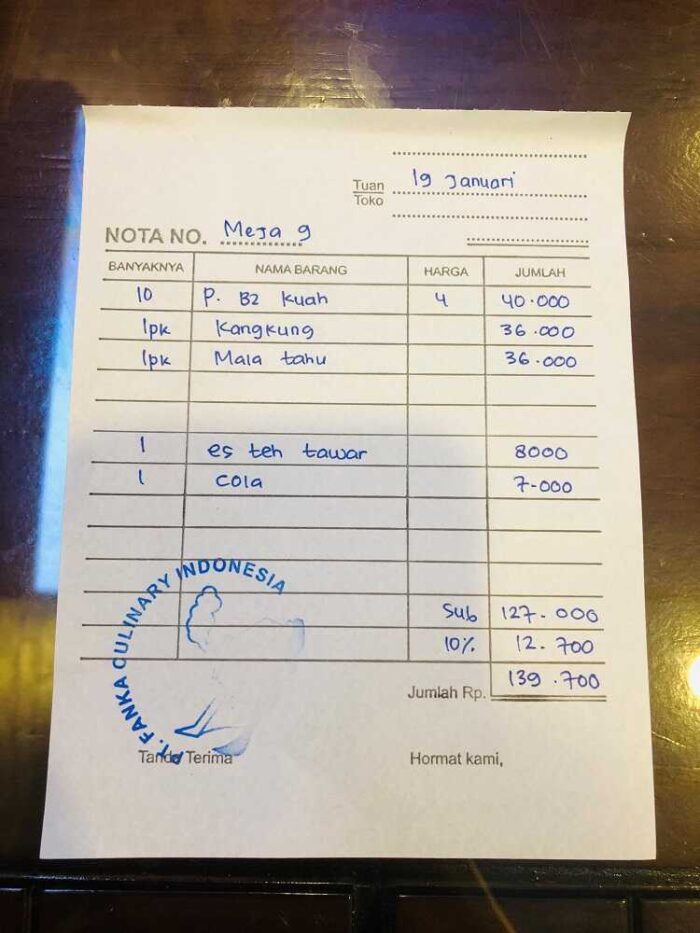 Tuan 19 Januari
Toko
NOTA NO. Meja 9
BANYAKNYA NAMA BARANG HARGA JUMLAH
10 P. B2 Kuah 4 40.000
1pk Kangkung 36.000
1pk Mala tahu 36.000
1 es teh tawar 8000
1 Cola 7-000
Sub 127.000
10% 12.700
Jumlah Rp. 139.700
PT. FANKA CULINARY INDONESIA
Tanda Terima Hormat kami,